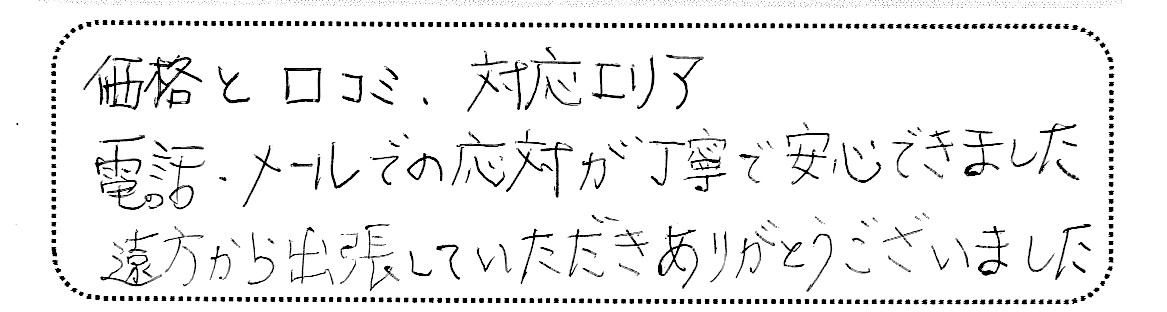 価格と口コミ、対応エリア
電話・メールでの応対が丁寧で安心できました
遠方から出張していただきありがとうございました